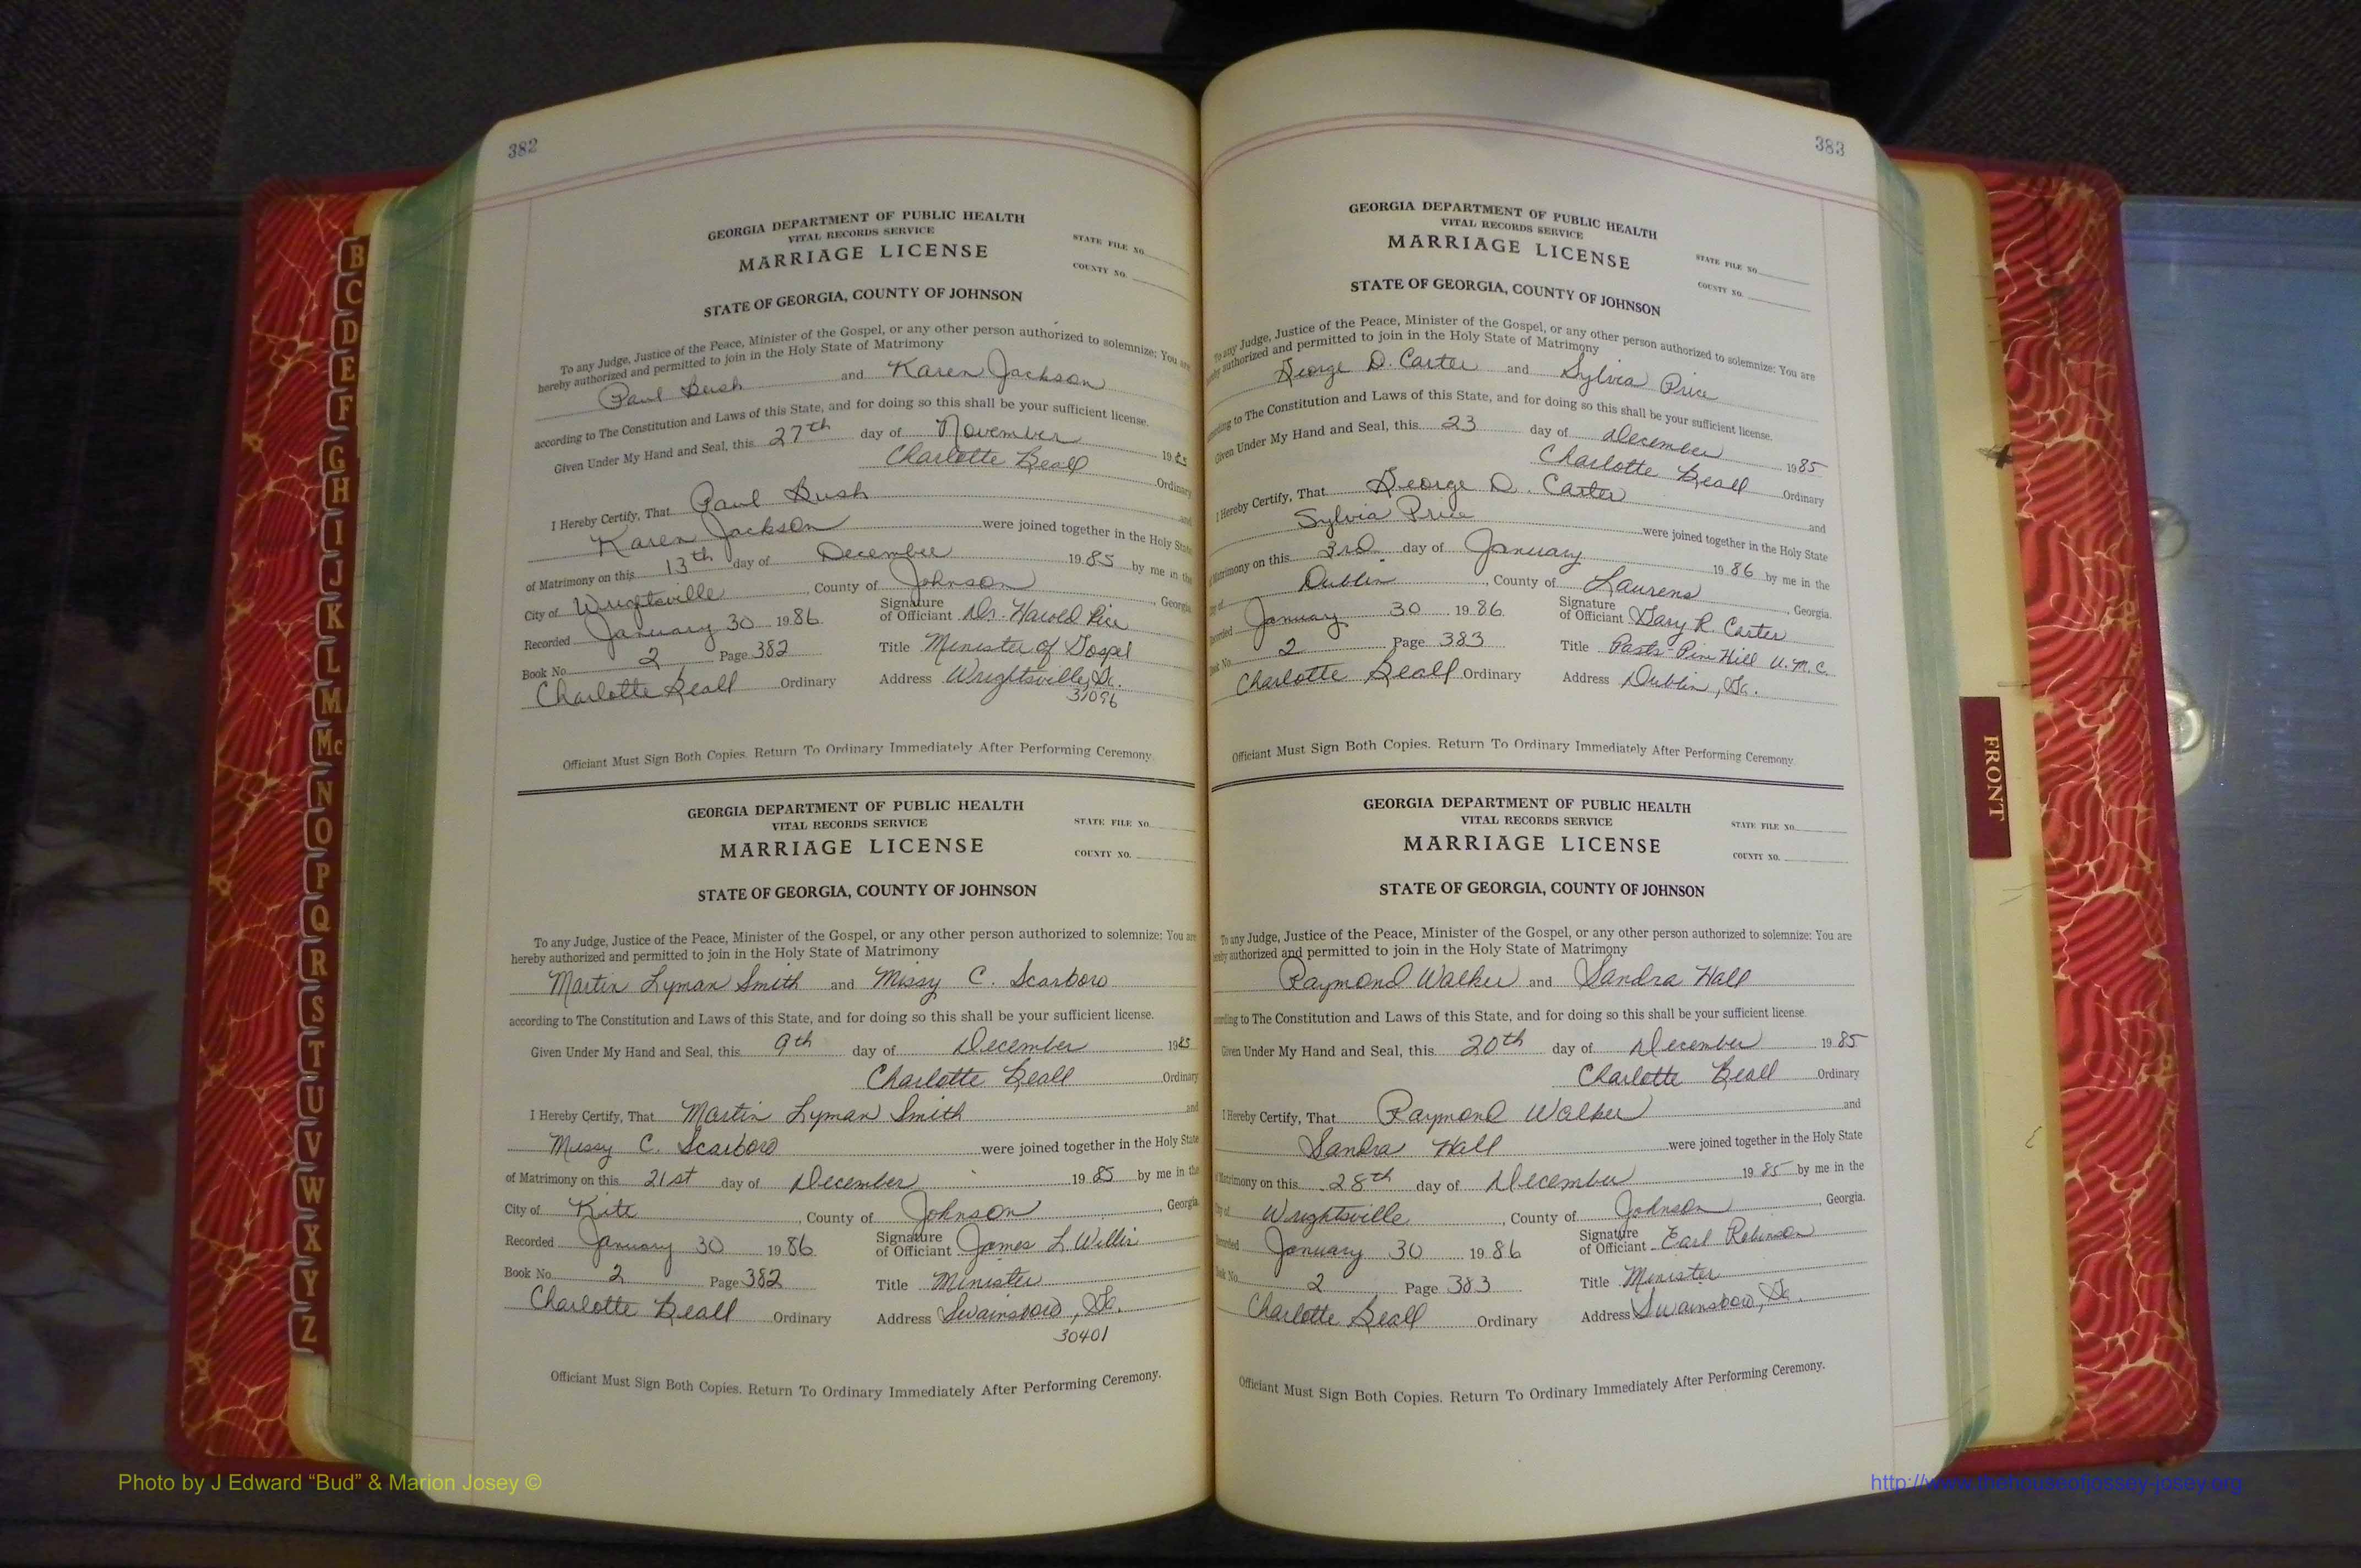 382
GEORGIA DEPARTMENT OF PUBLIC HEALTH
VITAL RECORDS SERVICE
MARRIAGE LICENSE
STATE FILE NO.
COUNTY NO.
STATE OF GEORGIA, COUNTY OF JOHNSON
To any Judge, Justice of the Peace, Minister of the Gospel, or any other person authorized to solemnize: You are
hereby authorized and permitted to join in the Holy State of Matrimony
Paul Bush and Karen Jackson
according to The Constitution and Laws of this State, and for doing so this shall be your sufficient license.
Given Under My Hand and Seal, this 27th day of November 1985
Charlotte Beall Ordinary
I Hereby Certify, That Paul Bush and
Karen Jackson were joined together in the Holy State
of Matrimony on this 13th day of December 1985 by me in the
City of Wrightsville, County of Johnson, Georgia
Recorded January 30 1986 Signature of Officiant Dr. Harold Rice
Book No. 2 Page 382 Title Minister of Gospel
Charlotte Beall Ordinary Address Wrightsville, Ga.
31096
Officiant Must Sign Both Copies. Return To Ordinary Immediately After Performing Ceremony.
GEORGIA DEPARTMENT OF PUBLIC HEALTH
VITAL RECORDS SERVICE
MARRIAGE LICENSE
STATE FILE NO.
COUNTY NO.
STATE OF GEORGIA, COUNTY OF JOHNSON
To any Judge, Justice of the Peace, Minister of the Gospel, or any other person authorized to solemnize: You are
hereby authorized and permitted to join in the Holy State of Matrimony
Martin Lyman Smith and Missy C. Scarboro
according to The Constitution and Laws of this State, and for doing so this shall be your sufficient license.
Given Under My Hand and Seal, this 9th day of December 1985
Charlotte Beall Ordinary
I Hereby Certify, That Martin Lyman Smith and
Missy C. Scarboro were joined together in the Holy State
of Matrimony on this 21st day of December 1985 by me in the
City of Kite, County of Johnson, Georgia
Recorded January 30 1986 Signature of Officiant James L. Willis
Book No. 2 Page 382 Title Minister
Charlotte Beall Ordinary Address Swainsboro, Ga.
30401
Officiant Must Sign Both Copies. Return To Ordinary Immediately After Performing Ceremony.
383
GEORGIA DEPARTMENT OF PUBLIC HEALTH
VITAL RECORDS SERVICE
MARRIAGE LICENSE
STATE FILE NO.
COUNTY NO.
STATE OF GEORGIA, COUNTY OF JOHNSON
To any Judge, Justice of the Peace, Minister of the Gospel, or any other person authorized to solemnize: You are
hereby authorized and permitted to join in the Holy State of Matrimony
George D. Carter and Sylvia Price
according to The Constitution and Laws of this State, and for doing so this shall be your sufficient license.
Given Under My Hand and Seal, this 23 day of December 1985
Charlotte Beall Ordinary
I Hereby Certify, That George D. Carter and
Sylvia Price were joined together in the Holy State
of Matrimony on this 3rd day of January 1986 by me in the
City of Dublin, County of Laurens, Georgia.
Recorded January 30 1986 Signature of Officiant Gary R. Carter
Book No. 2 Page 383 Title Pine Hill U.M.C.
Charlotte Beall Ordinary Address Dublin, Ga.
Officiant Must Sign Both Copies. Return To Ordinary Immediately After Performing Ceremony.
GEORGIA DEPARTMENT OF PUBLIC HEALTH
VITAL RECORDS SERVICE
MARRIAGE LICENSE
STATE FILE NO.
COUNTY NO.
STATE OF GEORGIA, COUNTY OF JOHNSON
To any Judge, Justice of the Peace, Minister of the Gospel, or any other person authorized to solemnize: You are
hereby authorized and permitted to join in the Holy State of Matrimony
Raymond Walker and Sandra Hall
according to The Constitution and Laws of this State, and for doing so this shall be your sufficient license.
Given Under My Hand and Seal, this 20th day of December 1985
Charlotte Beall Ordinary
I Hereby Certify, That Raymond Walker and
Sandra Hall were joined together in the Holy State
of Matrimony on this 28th day of December 1985 by me in the
City of Wrightsville, County of Johnson, Georgia.
Recorded January 30 1986 Signature of Officiant Earl Robinson
Book No. 2 Page 383 Title Minister
Charlotte Beall Ordinary Address Swainsboro, Ga.
Officiant Must Sign Both Copies. Return To Ordinary Immediately After Performing Ceremony.
B
C
D
E
F
G
H
I
J
K
L
M
Mc
N
O
P
Q
R
S
T
U
V
W
X
Y
Z
FRONT
Photo by J Edward “Bud” & Marion Josey ©
http://www.thehouseofjossey-josey.org